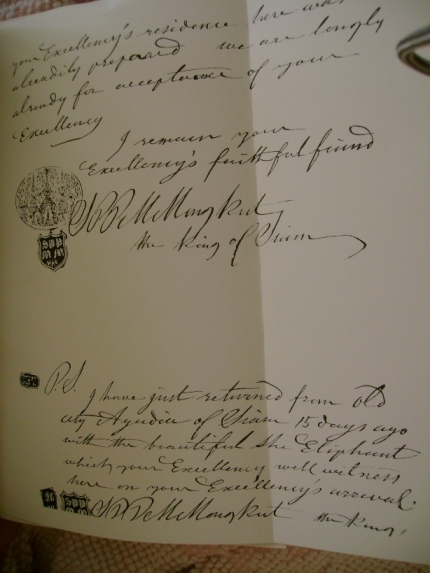 your Excellency's residence here was
alreadily prepared we are longly
already for acceptance of your
Excellency
I remain your
Excellency's faithful friend
SPPM Mongkut
the King of Siam
SPP
MM
P.S.
I have just returned from old
city Ayudia of Siam 15 days ago
with the beautiful she Elephant
which your Excellency will witness
here on your Excellency's arrival.
SPPM Mongkut the King.